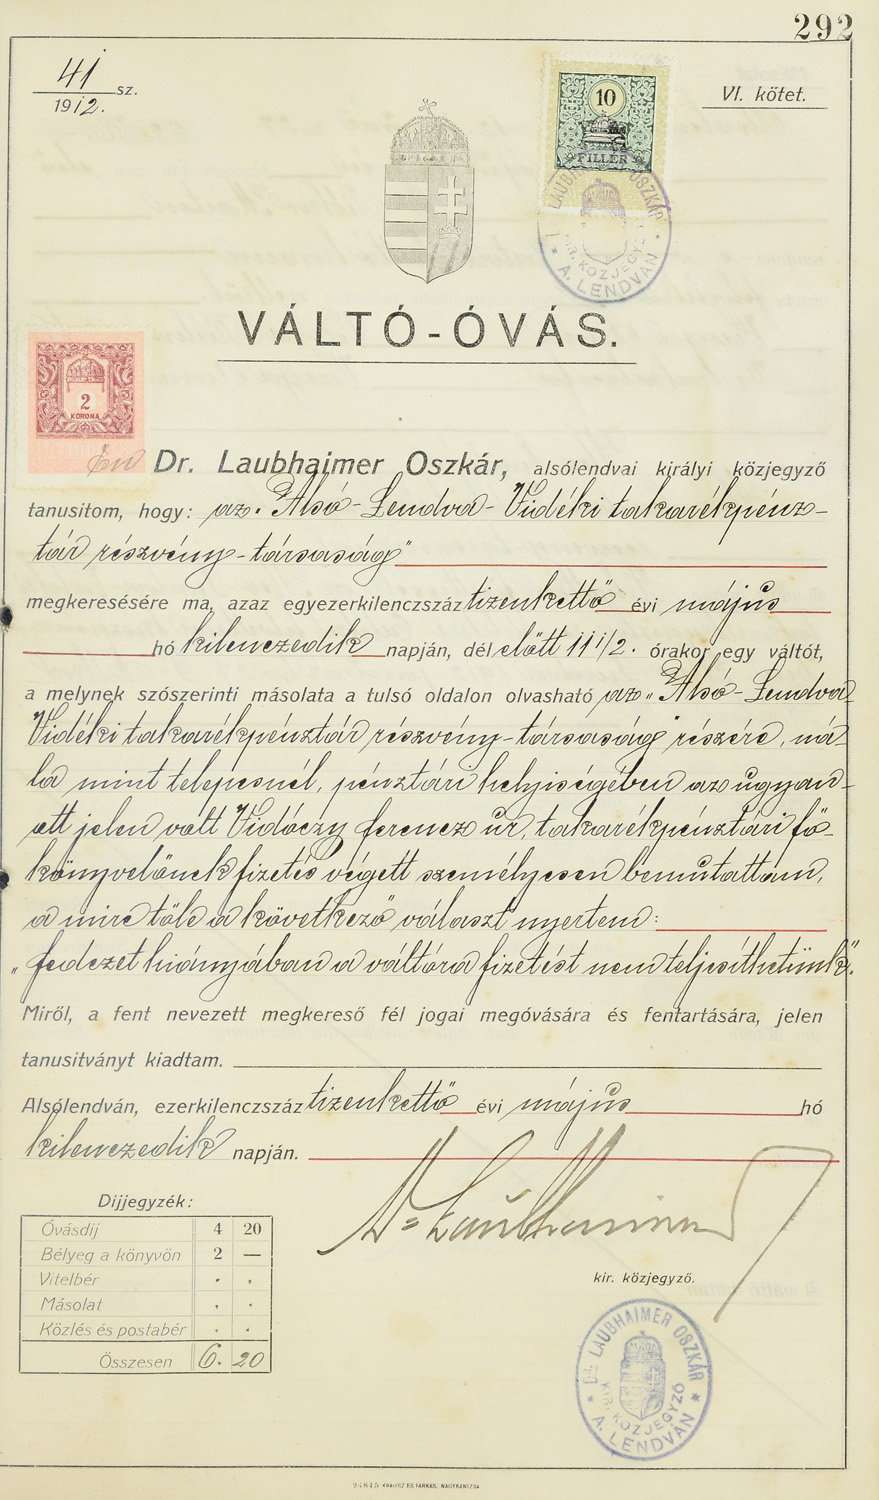 292
41 sz.
1912.
VI. kötet.
10
FILLÉR
LAUBHAIMER OSZKÁR
KIR. KÖZJEGYZŐ
A. LENDVÁN
VÁLTÓ-ÓVÁS.
2
KORONA
Dr. Laubhaimer Oszkár, alsólendvai királyi közjegyző
tanusitom, hogy: az „Alsó-Lendva-Vidéki takarékpénz-
tár részvény-társaság"
megkeresésére ma, azaz egyezerkilenczszáz tizenkettő évi május
hó kilenczedik napján, dél előtt 11 1/2. órakor egy váltót,
a melynek szószerinti másolata a tulsó oldalon olvasható az „Alsó-Lendva
Vidéki takarékpénztár részvény-társaság" részére, ná-
la mint telepesnél, pénztári helyiségében az ugyan-
ott jelen volt Vidóczy Ferencz úr, takarékpénztári fő-
könyvelőnek fizetés végett személyesen bemutattam,
a mire tőle a következő választ nyertem:
„fedezet hiányjában a váltóra fizetést nem teljesíthetünk".
Miről, a fent nevezett megkereső fél jogai megóvására és fentartására, jelen
tanusitványt kiadtam.
Alsólendván, ezerkilenczszáz tizenkettő évi május hó
kilenczedik napján.
Dr Laubhaimer
kir. közjegyző.
Dijjegyzék:
Óvásdij 4 20
Bélyeg a könyvön 2 —
Vitelbér . .
Másolat . .
Közlés és postabér . .
Összesen 6. 20
DR. LAUBHAIMER OSZKÁR
KIR. KÖZJEGYZŐ
A. LENDVÁN
24845 KRAUSZ ÉS FARKAS, NAGYKANIZSA